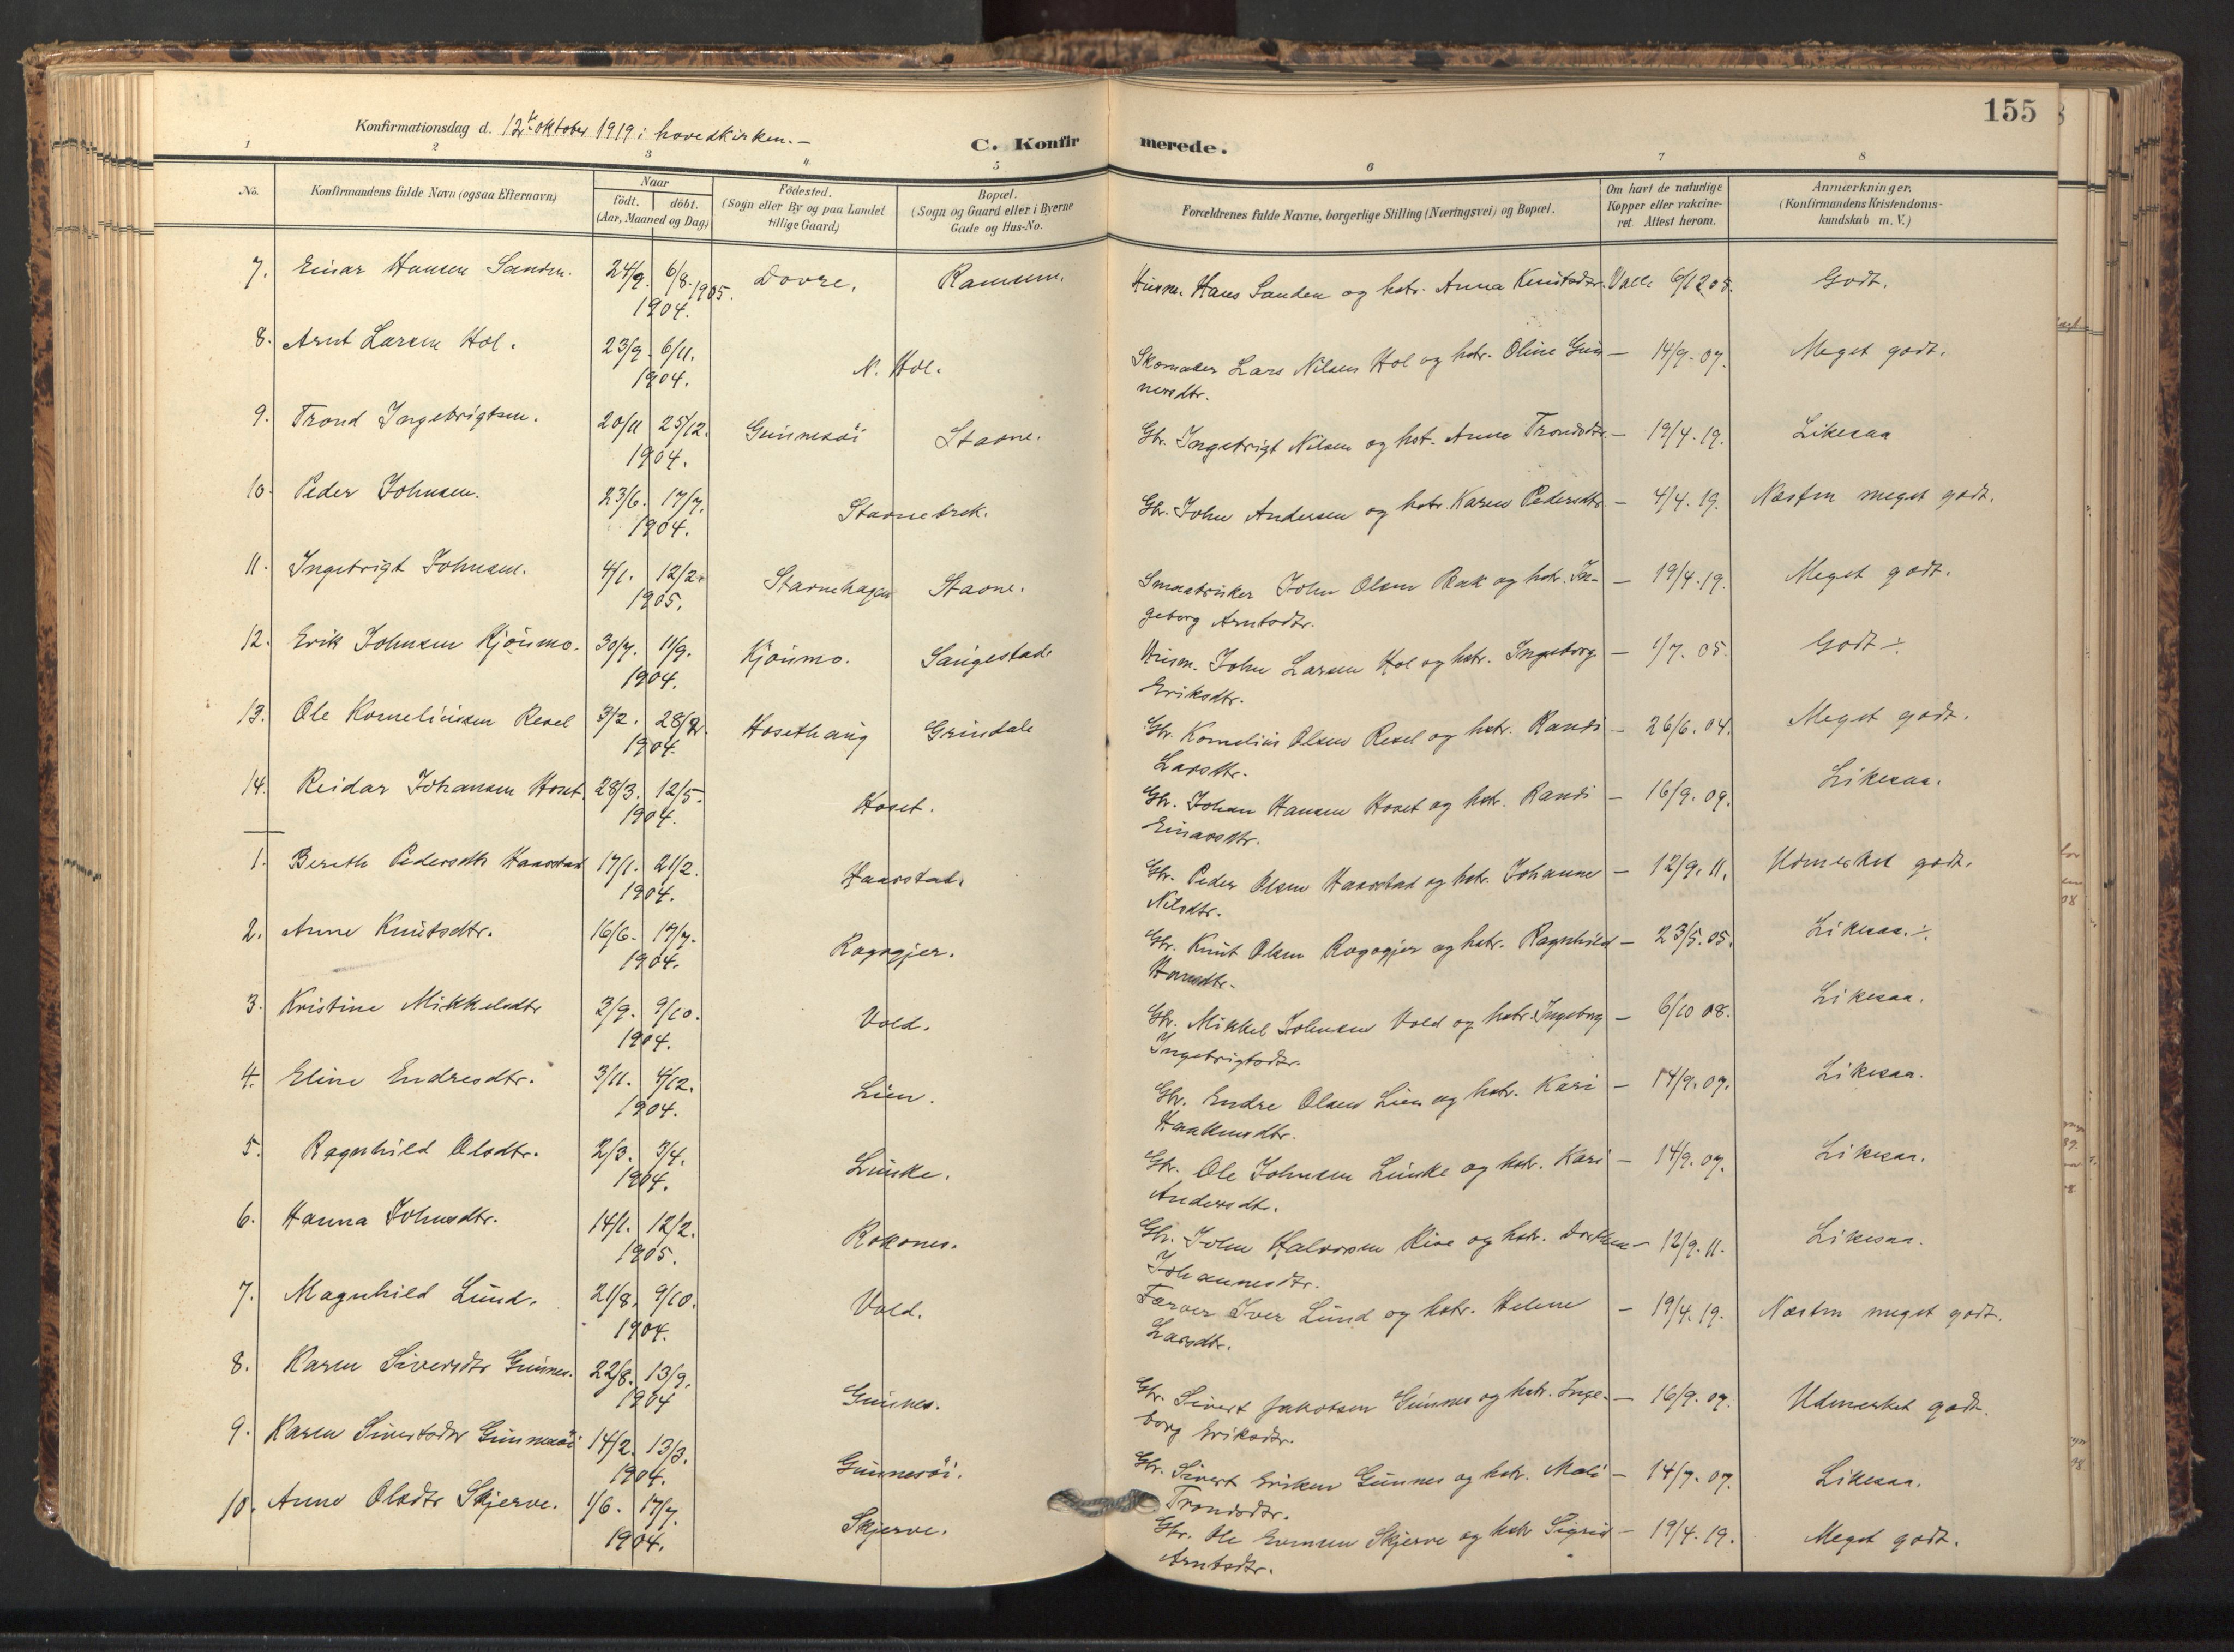 155
Konfirmationsdag d. 12te oktober 1919 i hovedkirken.-
C. Konfirmerede.
1 2 3 4 5 6 7 8
No. Konfirmandens fulde Navn (ogsaa Efternavn) Naar født. døbt. (Aar, Maaned og Dag) Födested. (Sogn eller By og paa Landet tillige Gaard) Bopæl. (Sogn og Gaard eller i Byerne Gade og Hus-No. Forældrenes fulde Navne, borgerlige Stilling (Næringsvei) og Bopæl. Om havt de naturlige Kopper eller vakcineret. Attest herom. Anmærkninger. (Konfirmandens Kristendomskundskab m. V.)
7. Einar Hansen Sanden. 24/9. 6/8. 1905. Dovre. Ramsem. Husm. Hans Sanden og hstr. Anna Knutsdtr. Vacc. 6/12 05. Godt.
1904.
8. Arnt Larsen Hol. 23/9. 6/11. N. Hol. Skomaker Lars Nilsen Hol og hstr. Oline Gun- — 14/9. 07. Meget godt.
1904. nersdtr.
9. Trond Ingebrigtsen. 20/11 25/12. Gunnesöi Stavne. Gbr. Ingebrigt Nilsen og hst. Anne Trondsdtr. — 19/4. 19. Likesaa
1904.
10. Peder Johnsen. 23/6. 17/7. Stavnebrek. Gbr. John Andersen og hstr. Karen Pedersdtr. — 4/4. 19. Næsten meget godt.
1904.
11. Ingebrigt Johnsen. 4/1. 12/2. Stavnehagen Stavne. Smaabruker John Olsen Bak og hstr. In- — 19/4. 19. Meget godt.
1905. geborg Arntsdtr.
12. Erik Johnsen Kjöumo. 30/7. 11/9. Kjöumo. Saugestad. Husm. John Larsen Hol og hstr. Ingeborg — 1/7. 05. Godt ÷
1904. Eriksdtr.
13. Ole Korneliussen Resel 3/2. 28/2. Hosethaug Grindal. Gbr. Kornelius Olsen Resel og hstr. Randi — 26/6. 04. Meget godt.
1904. Larsdtr.
14. Reidar Johansen Hoset. 28/3. 12/5. Hoset. Gbr. Johan Hansen Hoset og hstr. Randi — 16/9. 09. Likesaa.
1904. Einarsdtr.
1. Bereth Pedersdtr Haarstad 17/1. 21/2. Haarstad. Gbr. Peder Olsen Haarstad og hstr. Johanne — 12/9. 11. Udmerket godt.
1904. Nilsdtr.
2. Anne Knutsdtr. 16/6. 17/7. Rogogjer. Gbr. Knut Olsen Rogogjer og hstr. Ragnhild — 23/5. 05. Likesaa. ÷
1904. Hansdtr.
3. Kristine Mikkelsdtr 3/9. 9/10. Vold. Gbr. Mikkel Johnsen Vold og hstr. Ingeborg — 6/10 08. Likesaa.
1904. Ingebrigtsdtr.
4. Eline Endresdtr. 3/11. 4/12. Lien. Gbr. Endre Olsen Lien og hstr. Kari — 14/9. 07. Likesaa.
1904. Haakensdtr.
5. Ragnhild Olsdtr. 2/3. 3/4. Linske. Gbr. Ole Johnsen Linske og hstr. Kari — 14/9. 07. Likesaa.
1904. Andersdtr.
6. Hanna Johnsdtr. 14/1. 12/2. Rokones. Gbr. John Halvorsen Rise og hstr. Dorthea — 12/9. 11. Likesaa.
1905. Johannesdtr.
7. Magnhild Lund. 21/8. 9/10. Vold. Farver Iver Lund og hstr. Helene — 19/4. 19. Næsten meget godt.
1904. Larsdtr.
8. Karen Siversdtr Gunnes. 22/8. 13/9. Gunnes. Gbr. Sivert Jakobsen Gunnes og hstr. Inge- — 16/9. 07. Udmerket godt.
1904 borg Eriksdtr.
9. Karen Sivertsdtr Gunnesöi 14/2. 13/3. Gunnesöi. Gbr. Sivert Eriksen Gunnes og hstr. Mali — 14/9. 07. Likesaa.
1904. Trondsdtr.
10. Anne Olsdtr Skjerve. 1/6. 17/7. Skjerve. Gbr. Ole Evensen Skjerve og hstr Sigrid — 19/4. 19. Meget godt.
1904. Arntsdtr.